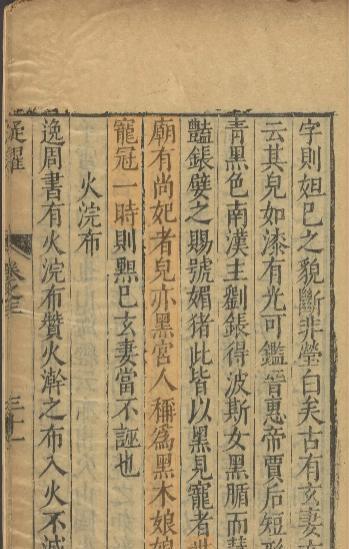 字則妲已之貌斷非瑩白矣古有玄妻
云其皃如漆有光可鑑晉惠帝賈后短形
青黑色南漢主劉鋹得波斯女黑腯而慧
豔鋹嬖之賜號媚猪此皆以黑見寵者
廟有尚妃者皃亦黑宫人稱為黑木娘娘
寵冠一時則黑已玄妻當不誣也
火浣布
逸周書有火浣布贊火澣之布入火不滅